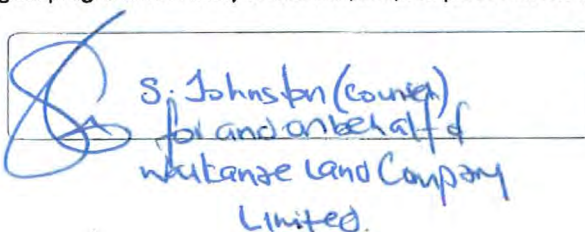 S. Johnston (Counsel)
for and on behalf of
Waikanae Land Company
Limited.